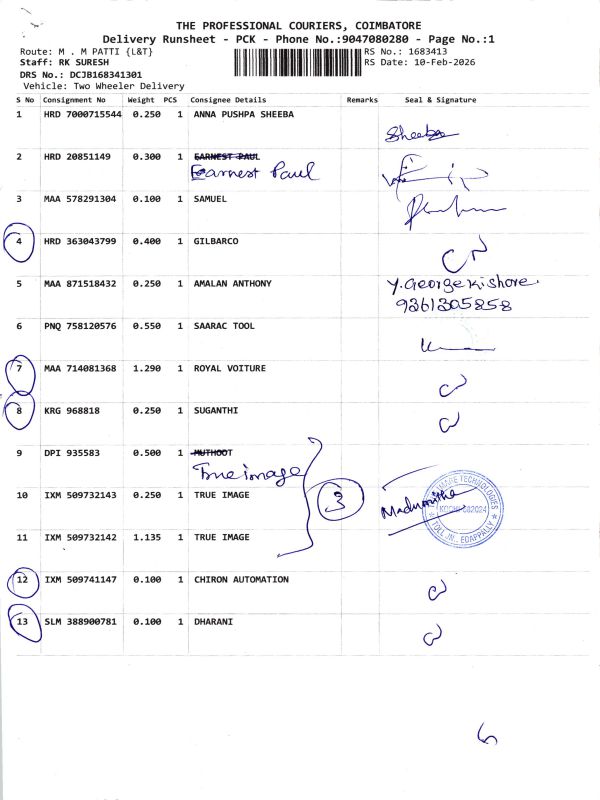 THE PROFESSIONAL COURIERS, COIMBATORE
Delivery Runsheet - PCK - Phone No.:9047080280 - Page No.:1
Route: M . M PATTI {L&T} RS No.: 1683413
Staff: RK SURESH RS Date: 10-Feb-2026
DRS No.: DCJB168341301
Vehicle: Two Wheeler Delivery
S No Consignment No Weight PCS Consignee Details Remarks Seal & Signature
1 HRD 7000715544 0.250 1 ANNA PUSHPA SHEEBA
Sheeba
2 HRD 20851149 0.300 1 EARNEST PAUL
Earnest Paul
3 MAA 578291304 0.100 1 SAMUEL
4 HRD 363043799 0.400 1 GILBARCO
5 MAA 871518432 0.250 1 AMALAN ANTHONY Y. George Kishore.
9361305858
6 PNQ 758120576 0.550 1 SAARAC TOOL
7 MAA 714081368 1.290 1 ROYAL VOITURE
8 KRG 968818 0.250 1 SUGANTHI
9 DPI 935583 0.500 1 MUTHOOT
True image
10 IXM 509732143 0.250 1 TRUE IMAGE 3
TECHNOLOGIES
KOCHI 682024
TOLL JN., EDAPPALLY
11 IXM 509732142 1.135 1 TRUE IMAGE
12 IXM 509741147 0.100 1 CHIRON AUTOMATION
13 SLM 388900781 0.100 1 DHARANI